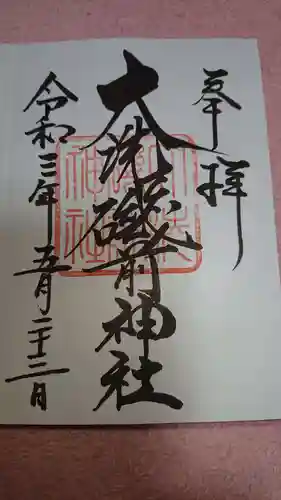 奉拝
大洗磯前神社
令和三年五月二十三日